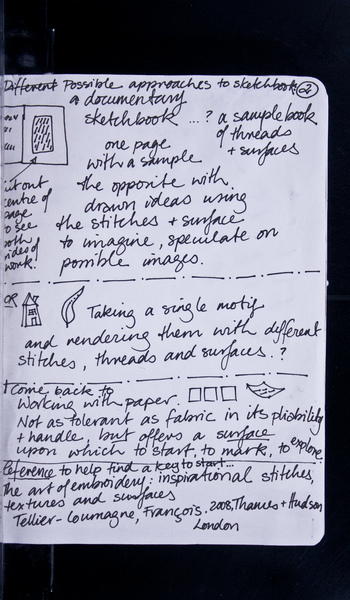 Different Possible approaches to sketchbook 2
a documentary
sketchbook ...? a samplebook
of threads
+ surfaces
one page
with a sample
the opposite with
drawn ideas using
the stitches + surface
to imagine, speculate on
possible images.
cut out
centre of
page
to see
both
sides of
work.
OR
Taking a single motif
and rendering them with different
stitches, threads and surfaces.?
I come back to
working with paper.
Not as tolerant as fabric in its pliability
+ handle, but offers a surface
upon which to start, to mark, to explore
Reference to help find a key to start...
The art of embroidery: inspirational stitches,
textures and surfaces
Tellier-Loumagne, François. 2008, Thames + Hudson
London